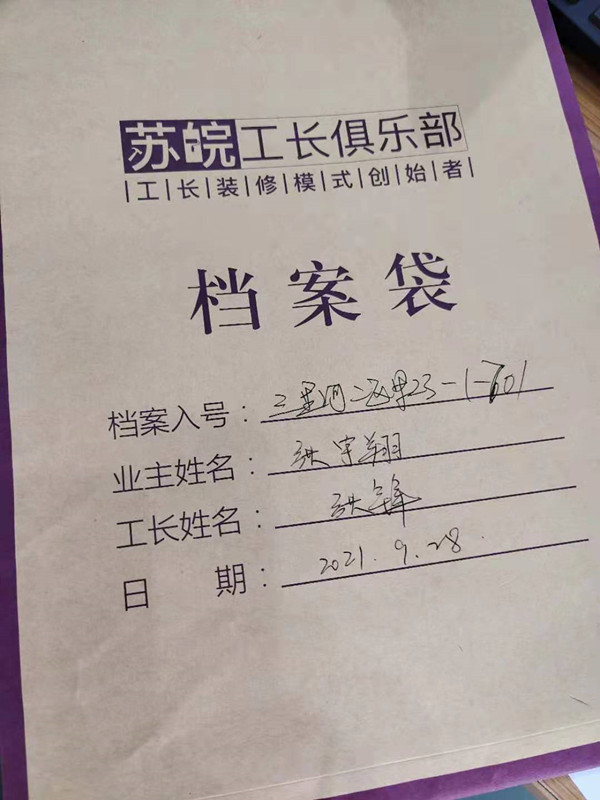 苏皖工长俱乐部
|工|长|装|修|模|式|创|始|者|
档案袋
档案入号：三里河二区23-1-701
业主姓名：洪宇翔
工长姓名：洪锋
日 期：2021.9.28